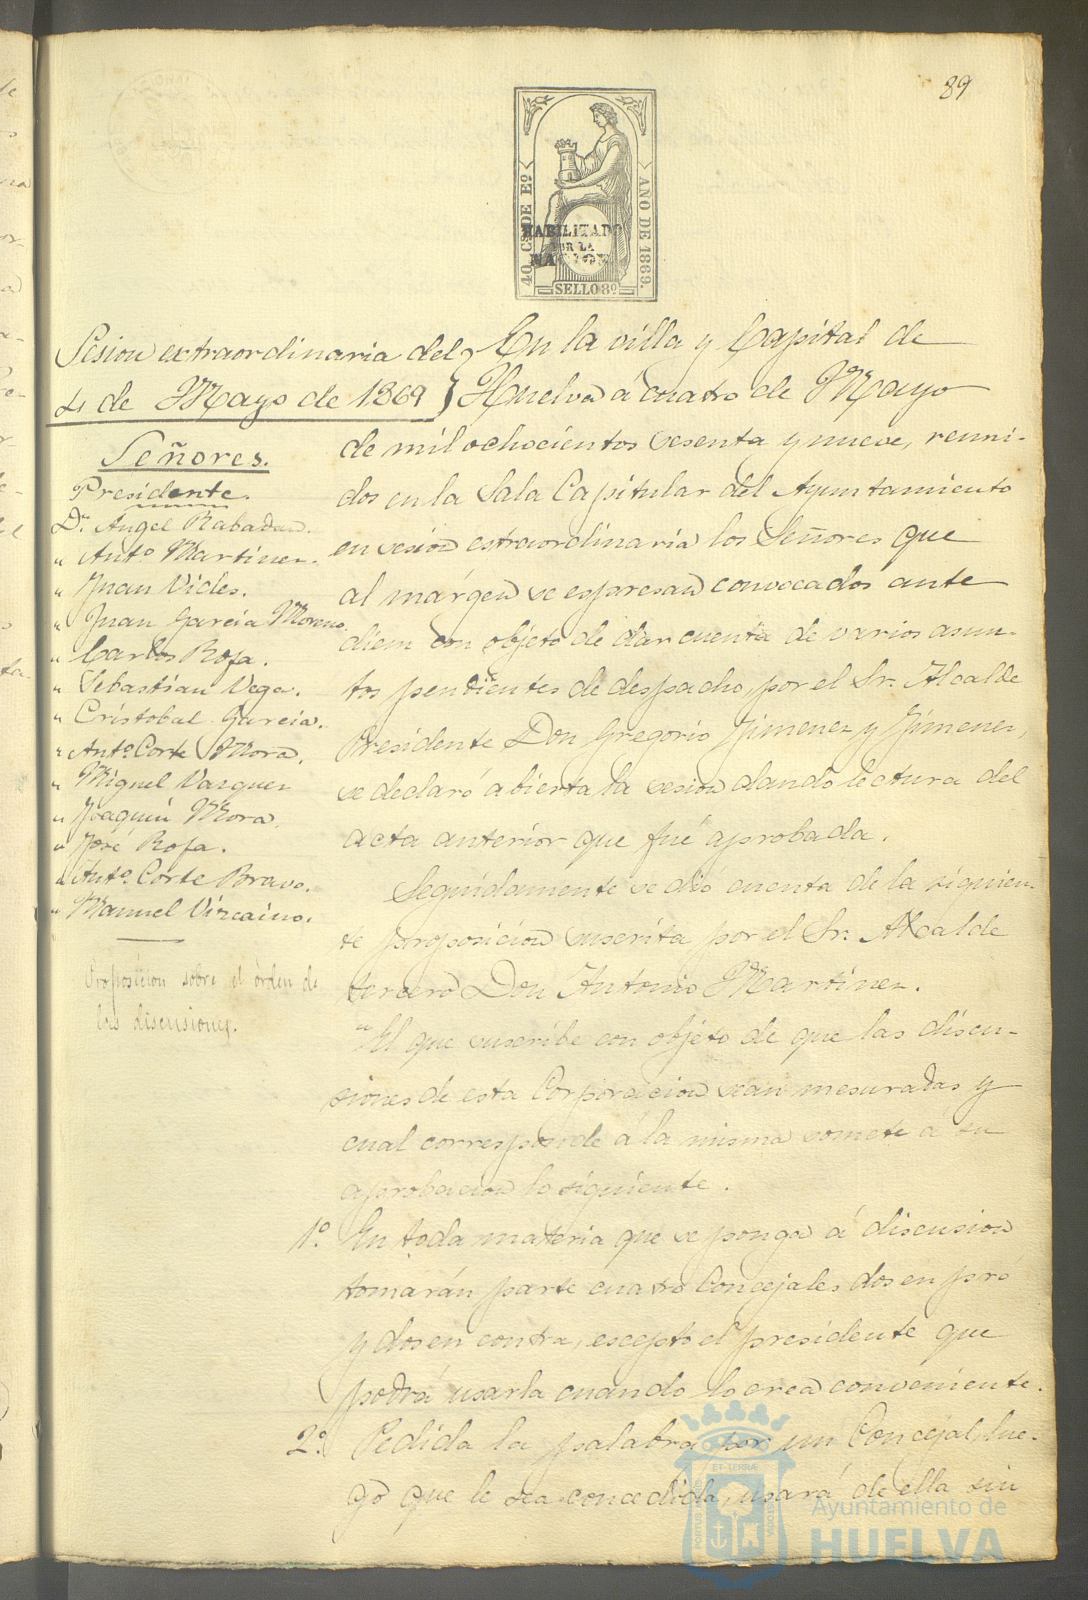 89
40 CS. DE Eº
AÑO DE 1869.
HABILITADO
POR LA
NACION.
SELLO 8º
Sesion extraordinaria del
4 de Mayo de 1869
Señores.
Presidente.
Dn. Angel Rabadan.
" Antº Martinez.
" Juan Vides.
" Juan Garcia Moreno.
" Carlos Rofa.
" Sebastian Vega.
" Cristobal Garcia.
" Antº Corte Mora.
" Miguel Vazquez
" Joaquin Mora.
" José Rofa.
" Antº Corte Bravo.
" Manuel Vizcaino.
Proposicion sobre el órden de
las discusiones.
En la villa y Capital de
Huelva á cuatro de Mayo
de mil ochocientos sesenta y nueve, reuni-
dos en la Sala Capitular del Ayuntamiento
en sesion estraordinaria los Señores que
al márgen se espresan convocados ante
diem con objeto de dar cuenta de varios asun-
tos pendientes de despacho, por el Sr. Alcalde
Presidente Don Gregorio Jimenez y Jimenez,
se declaró abierta la sesion dando lectura del
acta anterior que fué aprobada.
Seguidamente se dió cuenta de la siguien-
te proposicion suscrita por el Sr. Alcalde
tercero Don Antonio Martinez.
"El que suscribe con objeto de que las discu-
siones de esta Corporacion sean mesuradas y
cual corresponde á la misma somete á su
aprobacion lo siguiente.
1º. En toda materia que se ponga á discusion
tomarán parte cuatro Concejales dos en pró
y dos en contra, escepto el presidente que
podrá usarla cuando lo crea conveniente.
2º. Pedida la palabra por un Concejal, lue-
go que le sea concedida, usará de ella sin
PORTUS MARIS
ET TERRÆ
CUSTODIA
Ayuntamiento de
HUELVA